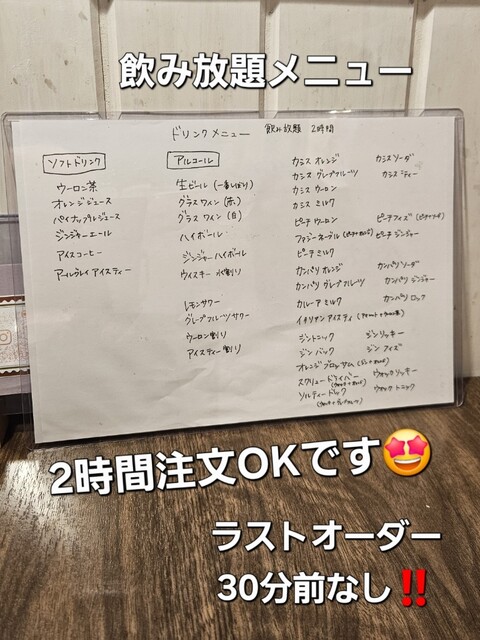 飲み放題メニュー
ドリンクメニュー 飲み放題 2時間
ソフトドリンク
ウーロン茶
オレンジジュース
パイナップルジュース
ジンジャーエール
アイスコーヒー
アールグレイ アイスティー
アルコール
生ビール (一番しぼり)
グラスワイン (赤)
グラスワイン (白)
ハイボール
ジンジャーハイボール
ウイスキー 水割り
レモンサワー
グレープフルーツサワー
ウーロン割り
アイスティー割り
カシス オレンジ
カシス グレープフルーツ
カシス ウーロン
カシス ミルク
ピーチ ウーロン
ファジーネーブル
ピーチ ミルク
カンパリ オレンジ
カンパリ グレープフルーツ
カルーア ミルク
イタリアン アイスティ
ジントニック
ジン バック
オレンジブロッサム
スクリュードライバー
ソルティードッグ
カシスソーダ
カシス ティー
ピーチフィズ
ピーチ ジンジャー
カンパリソーダ
カンパリ ジンジャー
カンパリ ロック
ジンリッキー
ジン フィズ
ウォッカリッキー
ウォッカ トニック
2時間注文OKです🤩
ラストオーダー
30分前なし‼️